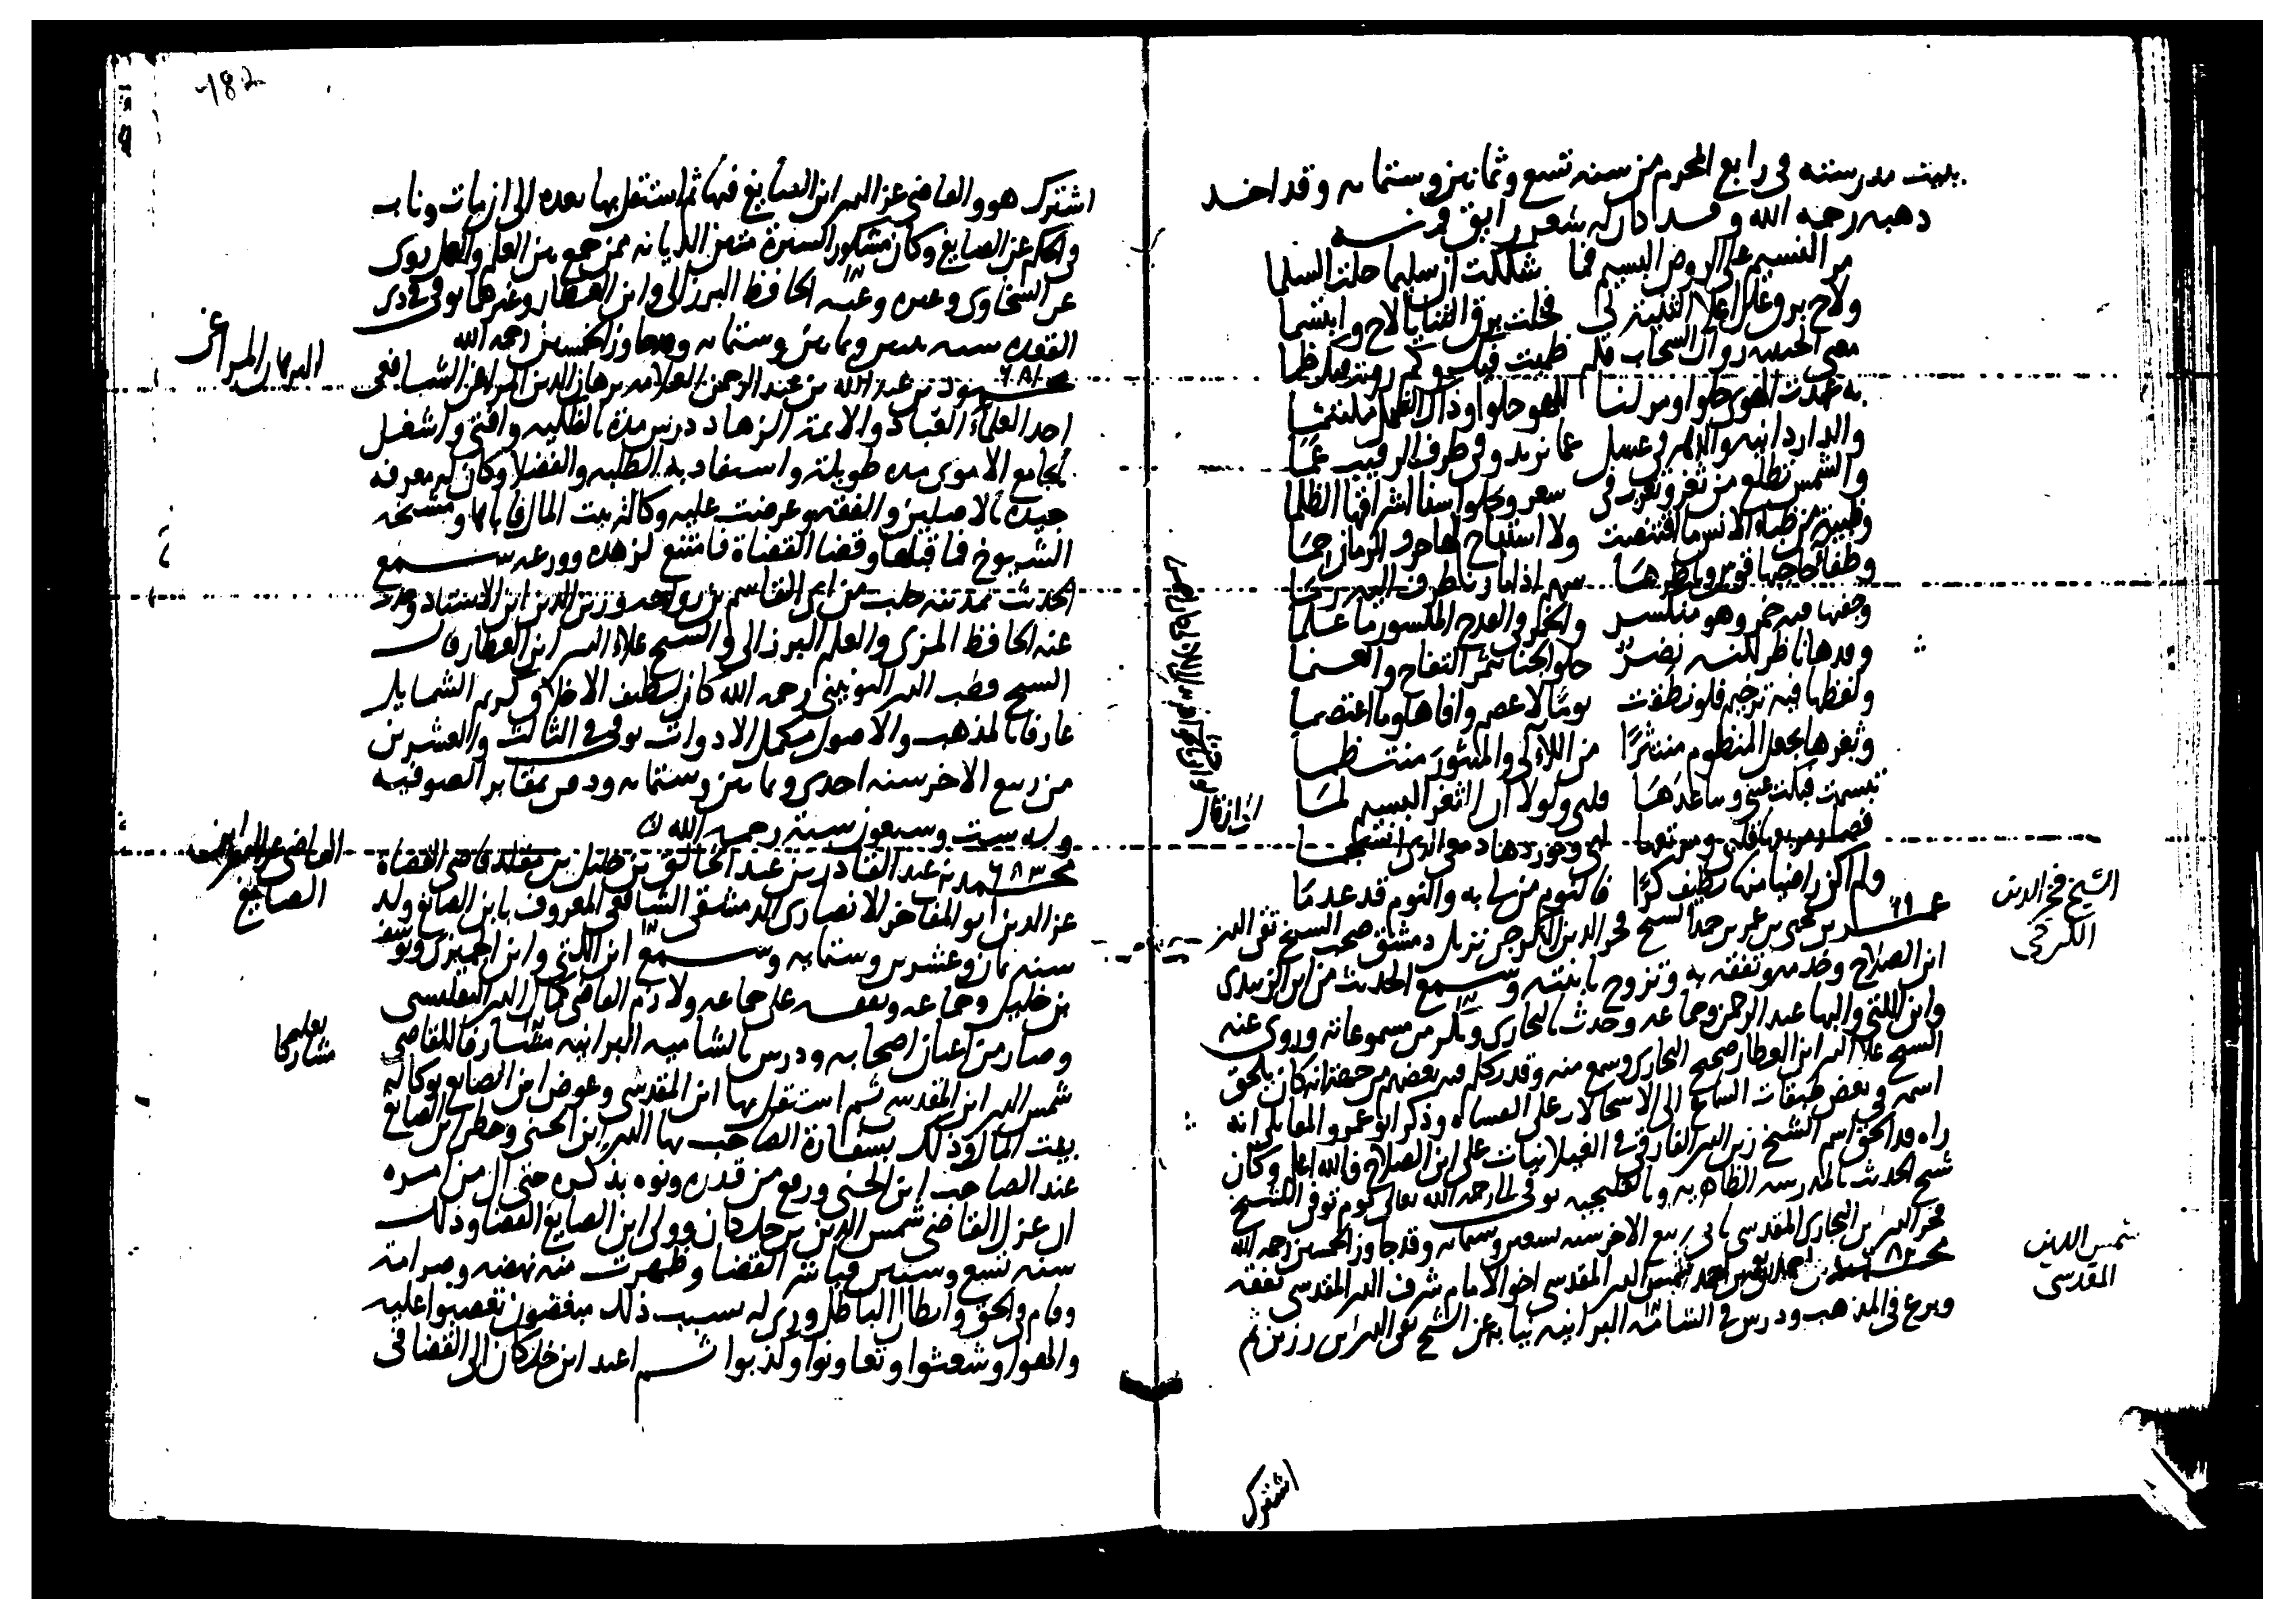 ببيت مدرسته في رابع المحرم من سنه تسع وثمانين وستمايه وقد اخد
دهبه رحمه الله وقد كان له شعر رايق فمنه
مر النسيم على الروض البسيم فما شككت ان سليما حلت السلما
ولاح برق على اعلا الثنية لي فخلت برق الثنايا لاح وابتسما
والدار دانيه والدهر في عما نريد وفي طرف الرقيب عما
والشمس تطلع من ثغر وتغرب في شعر وتجلو اشراقها الظلما
وظبية من ظباء الانس ما اقتنصت ولا استباح لها الزمان حما
وطفا حاجبها قوس وناظرها سهم اذا ما رنا طرف اليه رما
وجفنها فيه خمر وهو منكسر والخمر في القدح المكسور ما علما
وقدها ناظر لكنه نضر حلو الجنا ثمر التفاح والعنما
ولفظها فيه ترخيم فلو نطقت يوما لاعصم وافاها وما اعتصما
وثغرها يجعل المنظوم منتثرا من اللآلي والمنثور منتظما
تبسمت فبكت عيني وساعدها قلبي ولولا الثغر البسيم لما
ولم اكن راضيا منها بطيف كرا فاليوم من لي به والنوم قد عدما
عمر بن يحيى بن عمر بن حمد الشيخ فخر الدين الكرجي نزيل دمشق صحب الشيخ تقي الدين
ابن الصلاح وخدمه وتفقه به وتزوج بابنته وسمع الحديث من ابن الزبيدي
وابن اللتي والبها عبد الرحمن وجماعه وحدث بالبخاري من مسموعاته وروى عنه
الشيخ علا الدين ابن العطار صحيح البخاري وسمع منه وقد تكلم فيه بعضهم انه كان يلحق
اسمه في بعض طبقات السماع وذكر ابو عمرو المقاتلي انه
راه قد الحق اسم الشيخ زين الدين الفارقي في الغيلانيات على ابن الصلاح فالله اعلم وكان
شيخ الحديث بالمدرسه الظاهريه وبالقليجيه توفي رحمه الله تعالى يوم توفي الشيخ
فخر الدين بن البخاري المقدسي ثاني ربيع الاخر سنه تسعين وستمايه وقد جاوز رحمه الله
محمد بن احمد بن نعمه بن احمد شمس الدين المقدسي اخو الامام شرف الدين المقدسي تفقه
وبرع في المذهب ودرس في الشاميه البرانيه نيابه عن الشيخ تقي الدين بن رزين ثم
الشيخ فخر الدين
الكرجي
شمس الدين
المقدسي
اشترك
اشترك هو والقاضي عز الدين ابن الصايغ فيها ثم استقل بها بعده الى ان مات وناب
في الحكم عن ابن الصايغ وكان مشكور السيرة متين الديانه ممن جمع بين العلم والعمل روى
عن السخاوي وغيره وعنه الحافظ البرزالي وابن العطار وغيرهما توفي في ذي
القعده سنه اثنتين وثمانين وستمايه وقد جاوز الخمسين رحمه الله
محمود بن عبد الله بن عبد الرحمن العلامه برهان الدين المراغي الشافعي
احد العلماء العباد والائمة الزهاد درس مدة بالفلكيه وافتى واشغل
بجامع الاموي مده طويلة واستفاد به الطلبه والفضلا وكان له معرفه
جيده بالاصلين والفقه وعرضت عليه وكالة بيت المال فاباها ومشيخه
الشيوخ فما قبلها وقضا القضاة فامتنع لزهده وورعه سمع
الحديث بمدينه حلب من ابي القاسم بن رواحه وزين الدين ابن الاستاد وحدث
عنه الحافظ المزي والعلم البرزالي والشيخ علاء الدين ابن العطار قال
الشيخ قطب الدين اليونيني رحمه الله كان لطيف الاخلاق كريم الشمايل
عارفا بالمذهب والاصول مكمل الادوات توفي في الثالث والعشرين
من ربيع الاخر سنه احدى وثمانين وستمايه ودفن بمقابر الصوفيه
وله ست وسبعون سنة رحمه الله
محمد بن عبد القادر بن عبد الخالق بن خليل بن مقلد قاضي القضاة
عز الدين ابو المفاخر الانصاري الدمشقي الشافعي المعروف بابن الصايغ ولد
سنه ثمان وعشرين وستمايه وسمع ابن اللتي وابن الجميزي ويوسف
بن خليل وجماعه وتفقه على جماعه ولازم القاضي كمال الدين التفليسي
وصار من اعيان اصحابه ودرس بالشاميه البرانيه مشاركا للقاضي
شمس الدين ابن المقدسي ثم استقل بها ابن المقدسي وعوض ابن الصايغ بوكاله
بيت المال وذلك بسفارة الصاحب بها الدين ابن الحنى وحظى ابن الصايغ
عند الصاحب ابن الحنى ورفع من قدره ونوه بذكره حتى ال من امره
ان عزل القاضي شمس الدين بن خلكان وولى ابن الصايغ القضا وذلك
سنه تسع وستين فباشر القضا وظهرت منه نهضه وصرامة
وقام في الحق وابطال الباطل ودرى له بسبب ذلك مبغضون تعصبوا عليه
وشعثوا وتعاونوا وكذبوا ثم اعيد ابن خلكان الى القضا في
البرهان المراغي
القاضي عز الدين ابن
الصايغ
مشاركا